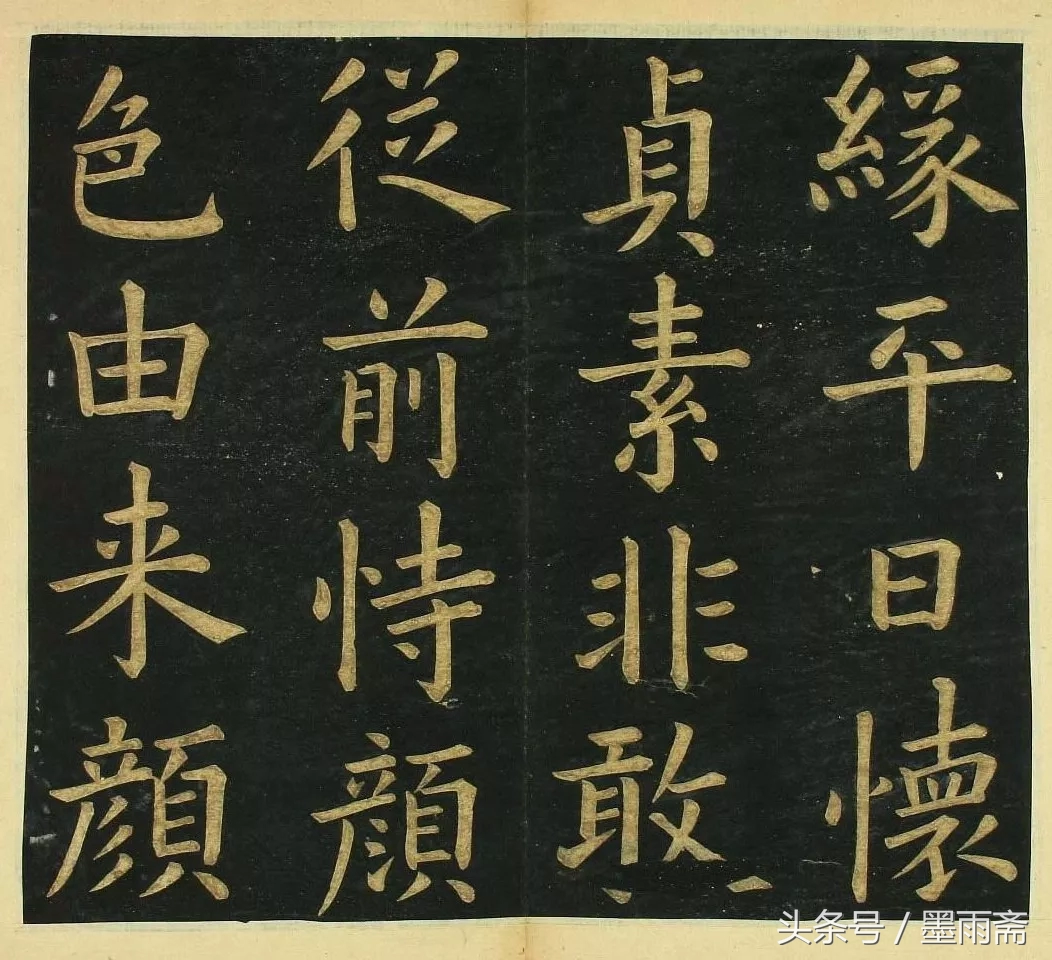 緣平日懷
貞素非敢
從前恃顏
色由来顏
头条号 / 墨雨斋